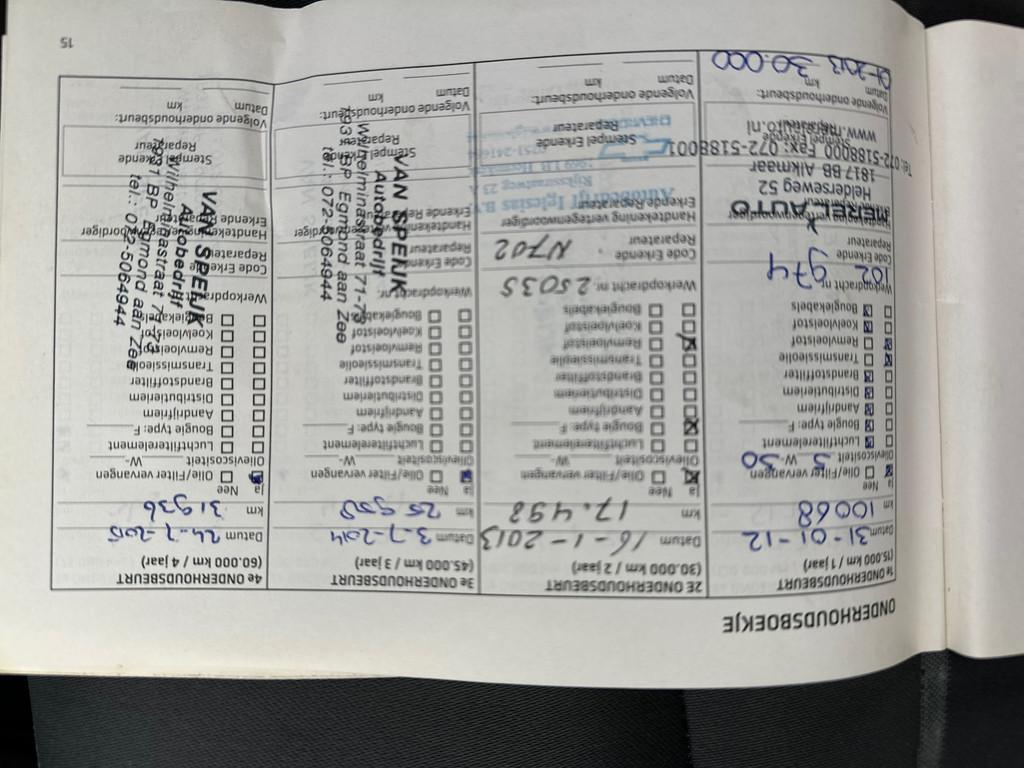 ONDERHOUDSBOEKJE
1e ONDERHOUDSBEURT
(15.000 km / 1 jaar)
Datum 31-01-12
km 10068
Ja Nee
Olie/Filter vervangen
Olieviscositeit 5 W- 30
Luchtfilterelement
Bougie type: F
Aandrijfriem
Distributieriem
Brandstoffilter
Transmissieolie
Remvloeistof
Koelvloeistof
Bougiekabels
Werkopdracht nr.
102 974
Code Erkende
Reparateur
MEREL AUTO
Helderseweg 52
1817 BB Alkmaar
Tel: 072-5188000 Fax: 072-5188001
www.merelauto.nl
Volgende onderhoudsbeurt:
Datum km
01-2013 30.000
2E ONDERHOUDSBEURT
(30.000 km / 2 jaar)
Datum 16-1-2013
km 17.498
Ja Nee
Olie/Filter vervangen
Olieviscositeit W-
Luchtfilterelement
Bougie type: F
Aandrijfriem
Distributieriem
Brandstoffilter
Transmissieolie
Remvloeistof
Koelvloeistof
Bougiekabels
Werkopdracht nr 25035
Code Erkende
Reparateur N702
Handtekening vertegenwoordiger
Erkende Reparateur
Autobedrijf Iglesias B.V.
Rijksstraatweg 23 A
Stempel Erkende
Reparateur
CHEVROLET
Volgende onderhoudsbeurt:
Datum km
3e ONDERHOUDSBEURT
(45.000 km / 3 jaar)
Datum 3-7-2014
km 25908
Ja Nee
Olie/Filter vervangen
Olieviscositeit W-
Luchtfilterelement
Bougie type: F
Aandrijfriem
Distributieriem
Brandstoffilter
Transmissieolie
Remvloeistof
Koelvloeistof
Bougiekabels
Werkopdracht nr.
Code Erkende
Reparateur
Handtekening vertegenwoordiger
Erkende Reparateur
Stempel Erkende
Reparateur
VAN SPEIJK
Autobedrijf
Wilhelminastraat 71-73
1931 BP Egmond aan Zee
tel.: 072-5064944
Volgende onderhoudsbeurt:
Datum km
4e ONDERHOUDSBEURT
(60.000 km / 4 jaar)
Datum 24-7-2015
km 31936
Ja Nee
Olie/Filter vervangen
Olieviscositeit W-
Luchtfilterelement
Bougie type: F
Aandrijfriem
Distributieriem
Brandstoffilter
Transmissieolie
Remvloeistof
Koelvloeistof
Bougiekabels
Werkopdracht
Code Erkende
Reparateur
Handtekening vertegenwoordiger
Erkende Reparateur
Stempel Erkende
Reparateur
VAN SPEIJK
Autobedrijf
Wilhelminastraat 71-73
1931 BP Egmond aan Zee
tel.: 072-5064944
Volgende onderhoudsbeurt:
Datum km
15